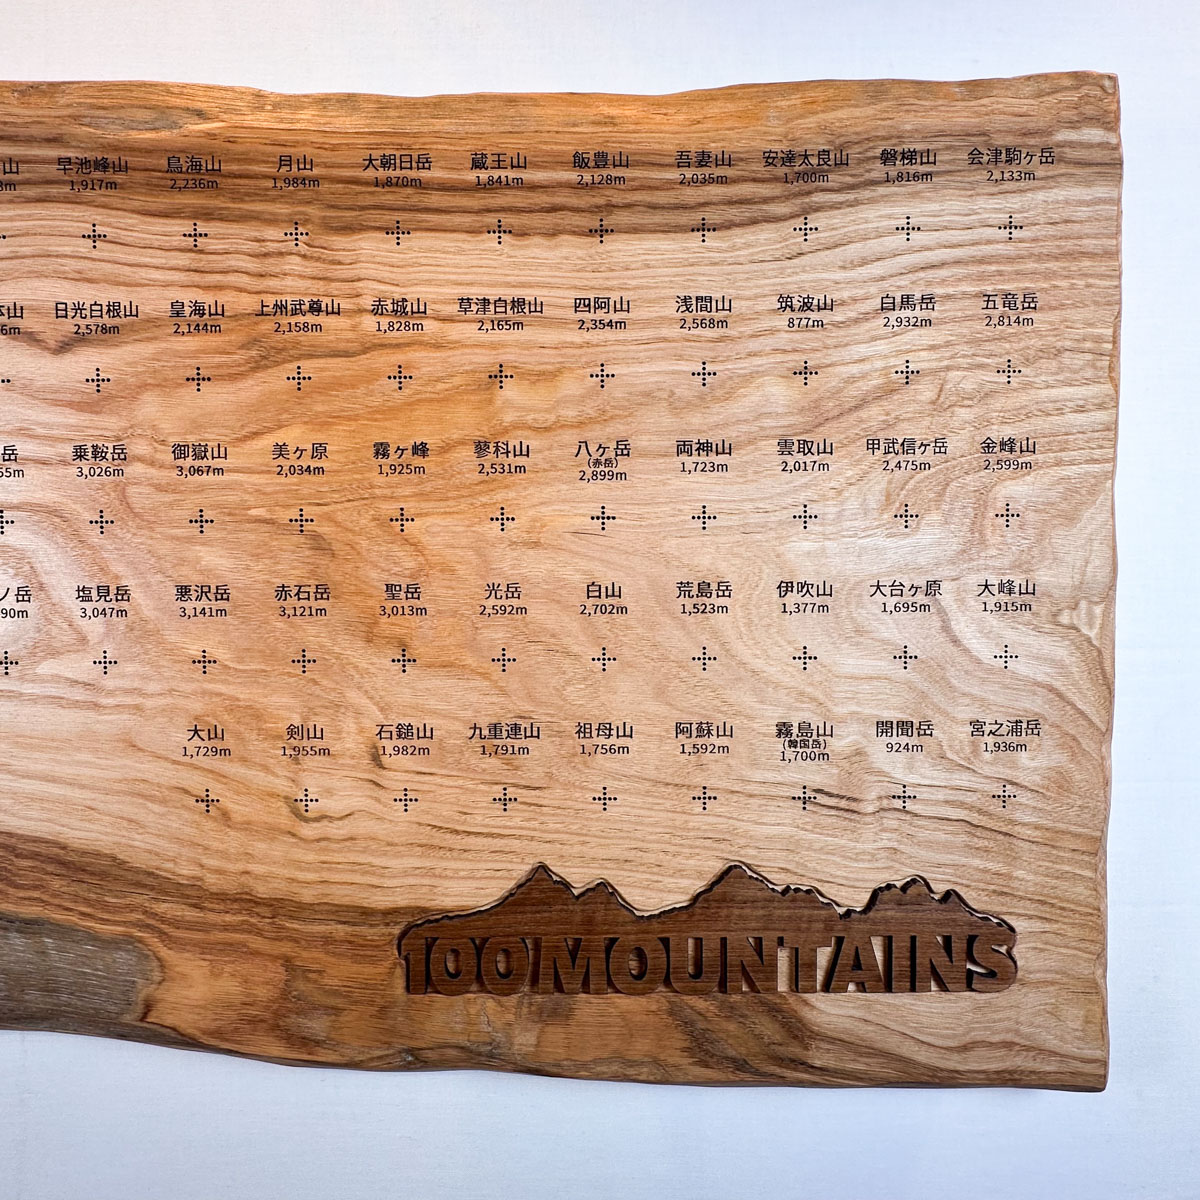 山 早池峰山 鳥海山 月山 大朝日岳 蔵王山 飯豊山 吾妻山 安達太良山 磐梯山 会津駒ヶ岳
8m 1,917m 2,236m 1,984m 1,870m 1,841m 2,128m 2,035m 1,700m 1,816m 2,133m
山 日光白根山 皇海山 上州武尊山 赤城山 草津白根山 四阿山 浅間山 筑波山 白馬岳 五竜岳
6m 2,578m 2,144m 2,158m 1,828m 2,165m 2,354m 2,568m 877m 2,932m 2,814m
岳 乗鞍岳 御嶽山 美ヶ原 霧ヶ峰 蓼科山 八ヶ岳 両神山 雲取山 甲武信ヶ岳 金峰山
(赤岳)
55m 3,026m 3,067m 2,034m 1,925m 2,531m 2,899m 1,723m 2,017m 2,475m 2,599m
ノ岳 塩見岳 悪沢岳 赤石岳 聖岳 光岳 白山 荒島岳 伊吹山 大台ヶ原 大峰山
90m 3,047m 3,141m 3,121m 3,013m 2,592m 2,702m 1,523m 1,377m 1,695m 1,915m
大山 剣山 石鎚山 九重連山 祖母山 阿蘇山 霧島山 開聞岳 宮之浦岳
(韓国岳)
1,729m 1,955m 1,982m 1,791m 1,756m 1,592m 1,700m 924m 1,936m
100MOUNTAINS